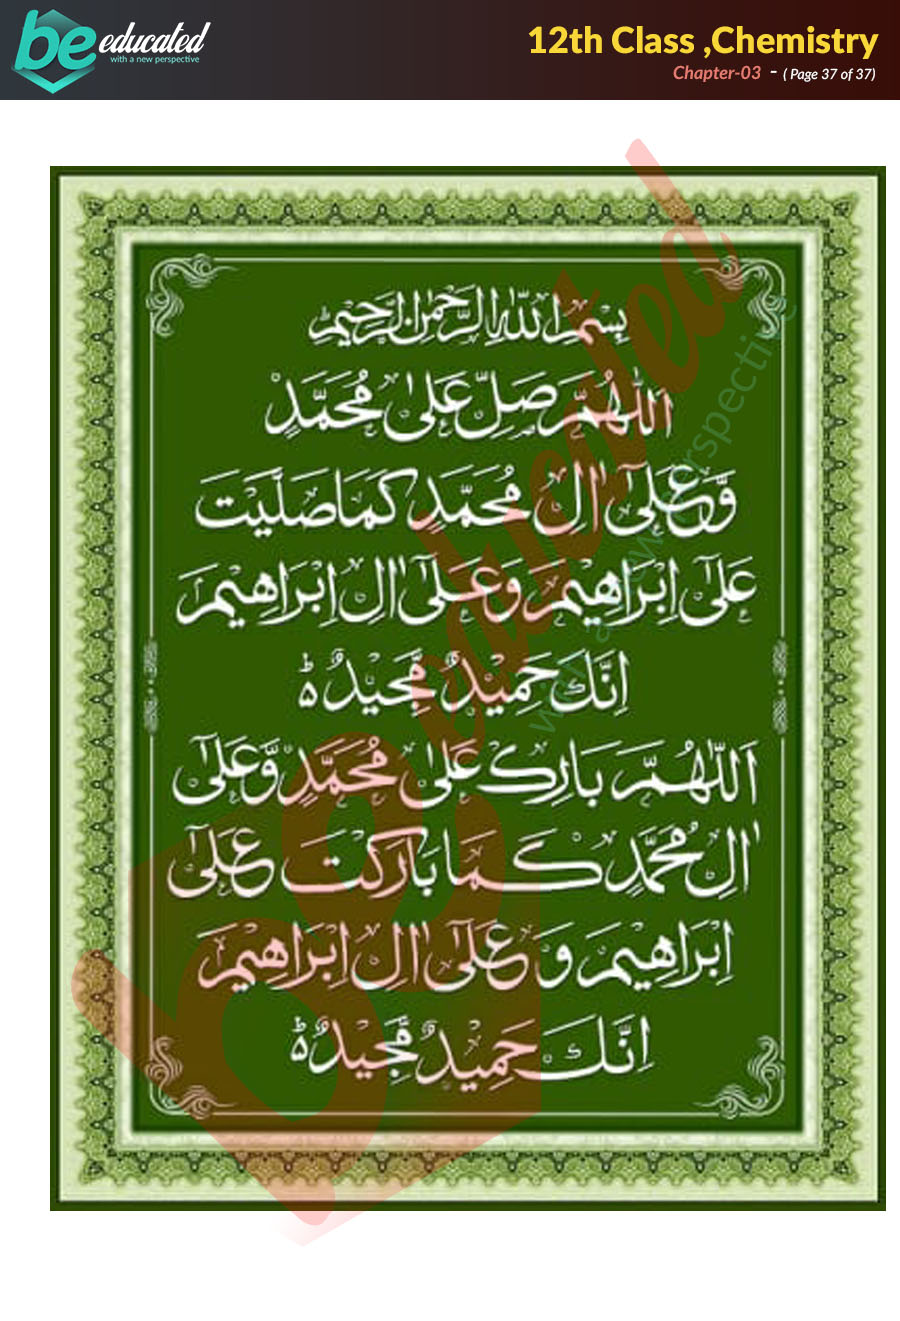 be educated
with a new perspective
12th Class ,Chemistry
Chapter-03 - ( Page 37 of 37)
بِسْمِ اللّٰهِ الرَّحْمٰنِ الرَّحِيْمِ
اَللّٰهُمَّ صَلِّ عَلٰى مُحَمَّدٍ
وَّعَلٰٓى اٰلِ مُحَمَّدٍ كَمَا صَلَّيْتَ
عَلٰٓى اِبْرَاهِيْمَ وَعَلٰٓى اٰلِ اِبْرَاهِيْمَ
اِنَّكَ حَمِيْدٌ مَّجِيْدٌ ؕ
اَللّٰهُمَّ بَارِكْ عَلٰى مُحَمَّدٍ وَّعَلٰٓى
اٰلِ مُحَمَّدٍ كَمَا بَارَكْتَ عَلٰٓى
اِبْرَاهِيْمَ وَ عَلٰٓى اٰلِ اِبْرَاهِيْمَ
اِنَّكَ حَمِيْدٌ مَّجِيْدٌ ؕ
be educated
with a new perspective